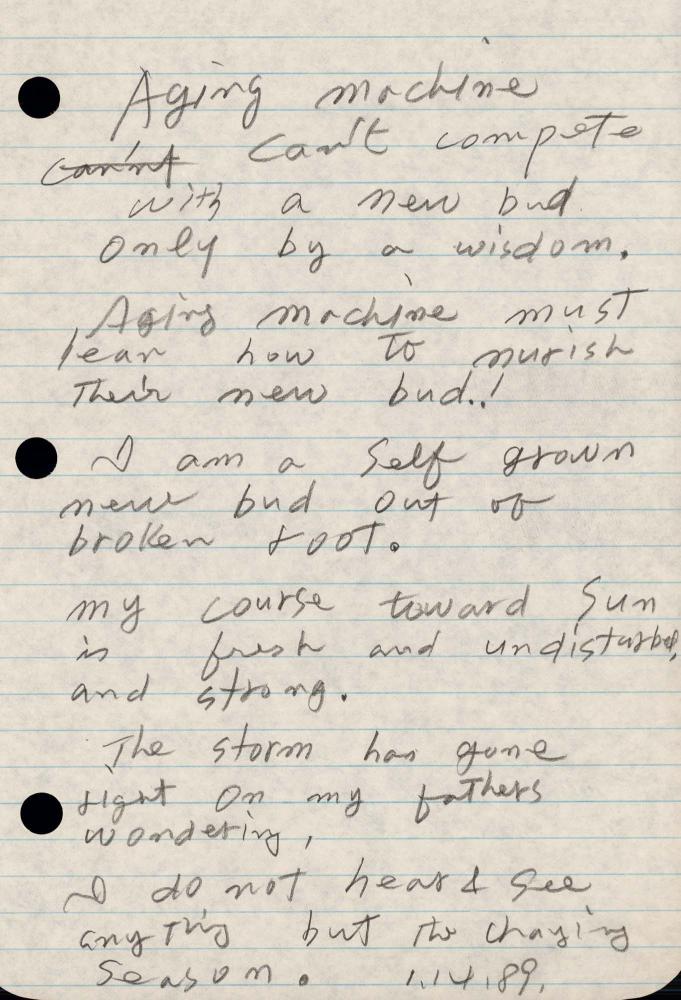 Aging machine
can'nt can't compete
with a new bud
only by a wisdom.
Aging machine must
lear how to nurish
Their new bud..!
I am a Self grown
new bud out of
broken root.
my course toward Sun
is fresh and undisturbed,
and strong.
The storm has gone
right on my fathers
wondering,
I do not hear & see
any Thing but the chaying
Season. 1.14.89.